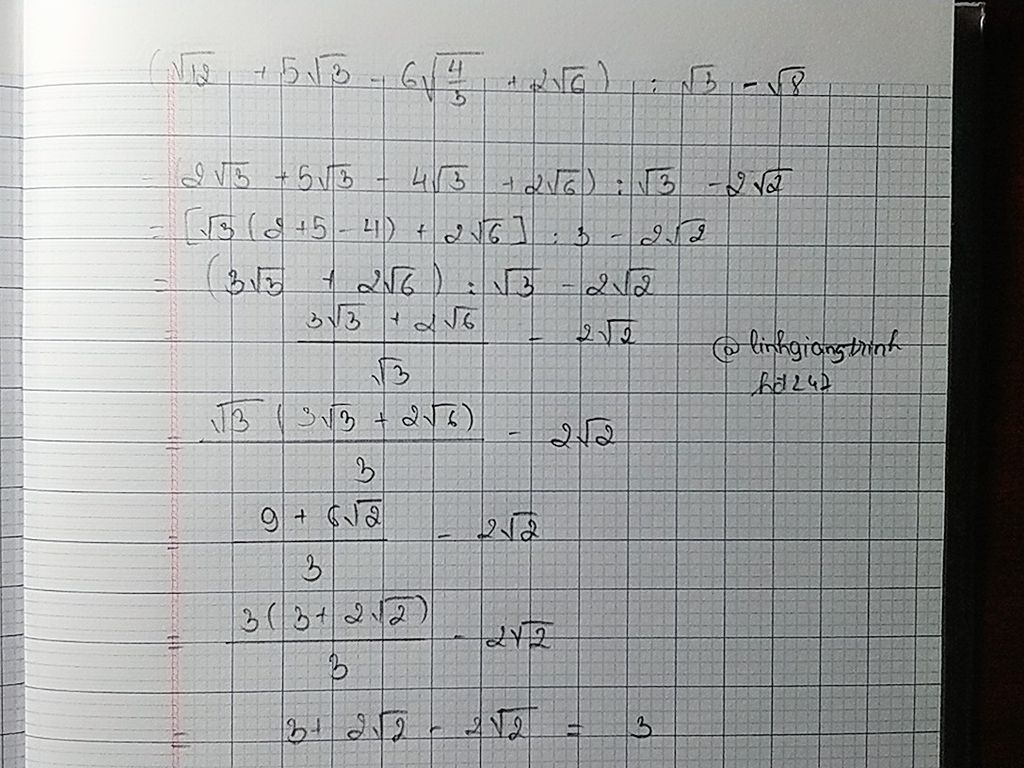 (√12 + 5√3 - 6√(4/3) + 2√6) : √3 - √8
= (2√3 + 5√3 - 4√3 + 2√6) : √3 - 2√2
= [√3 (2 + 5 - 4) + 2√6] : 3 - 2√2
= (3√3 + 2√6) : √3 - 2√2
= (3√3 + 2√6)/√3 - 2√2
@linhgiangtrinh
hd247
= √3 (3√3 + 2√6)/3 - 2√2
= (9 + 6√2)/3 - 2√2
= 3(3 + 2√2)/3 - 2√2
= 3 + 2√2 - 2√2 = 3